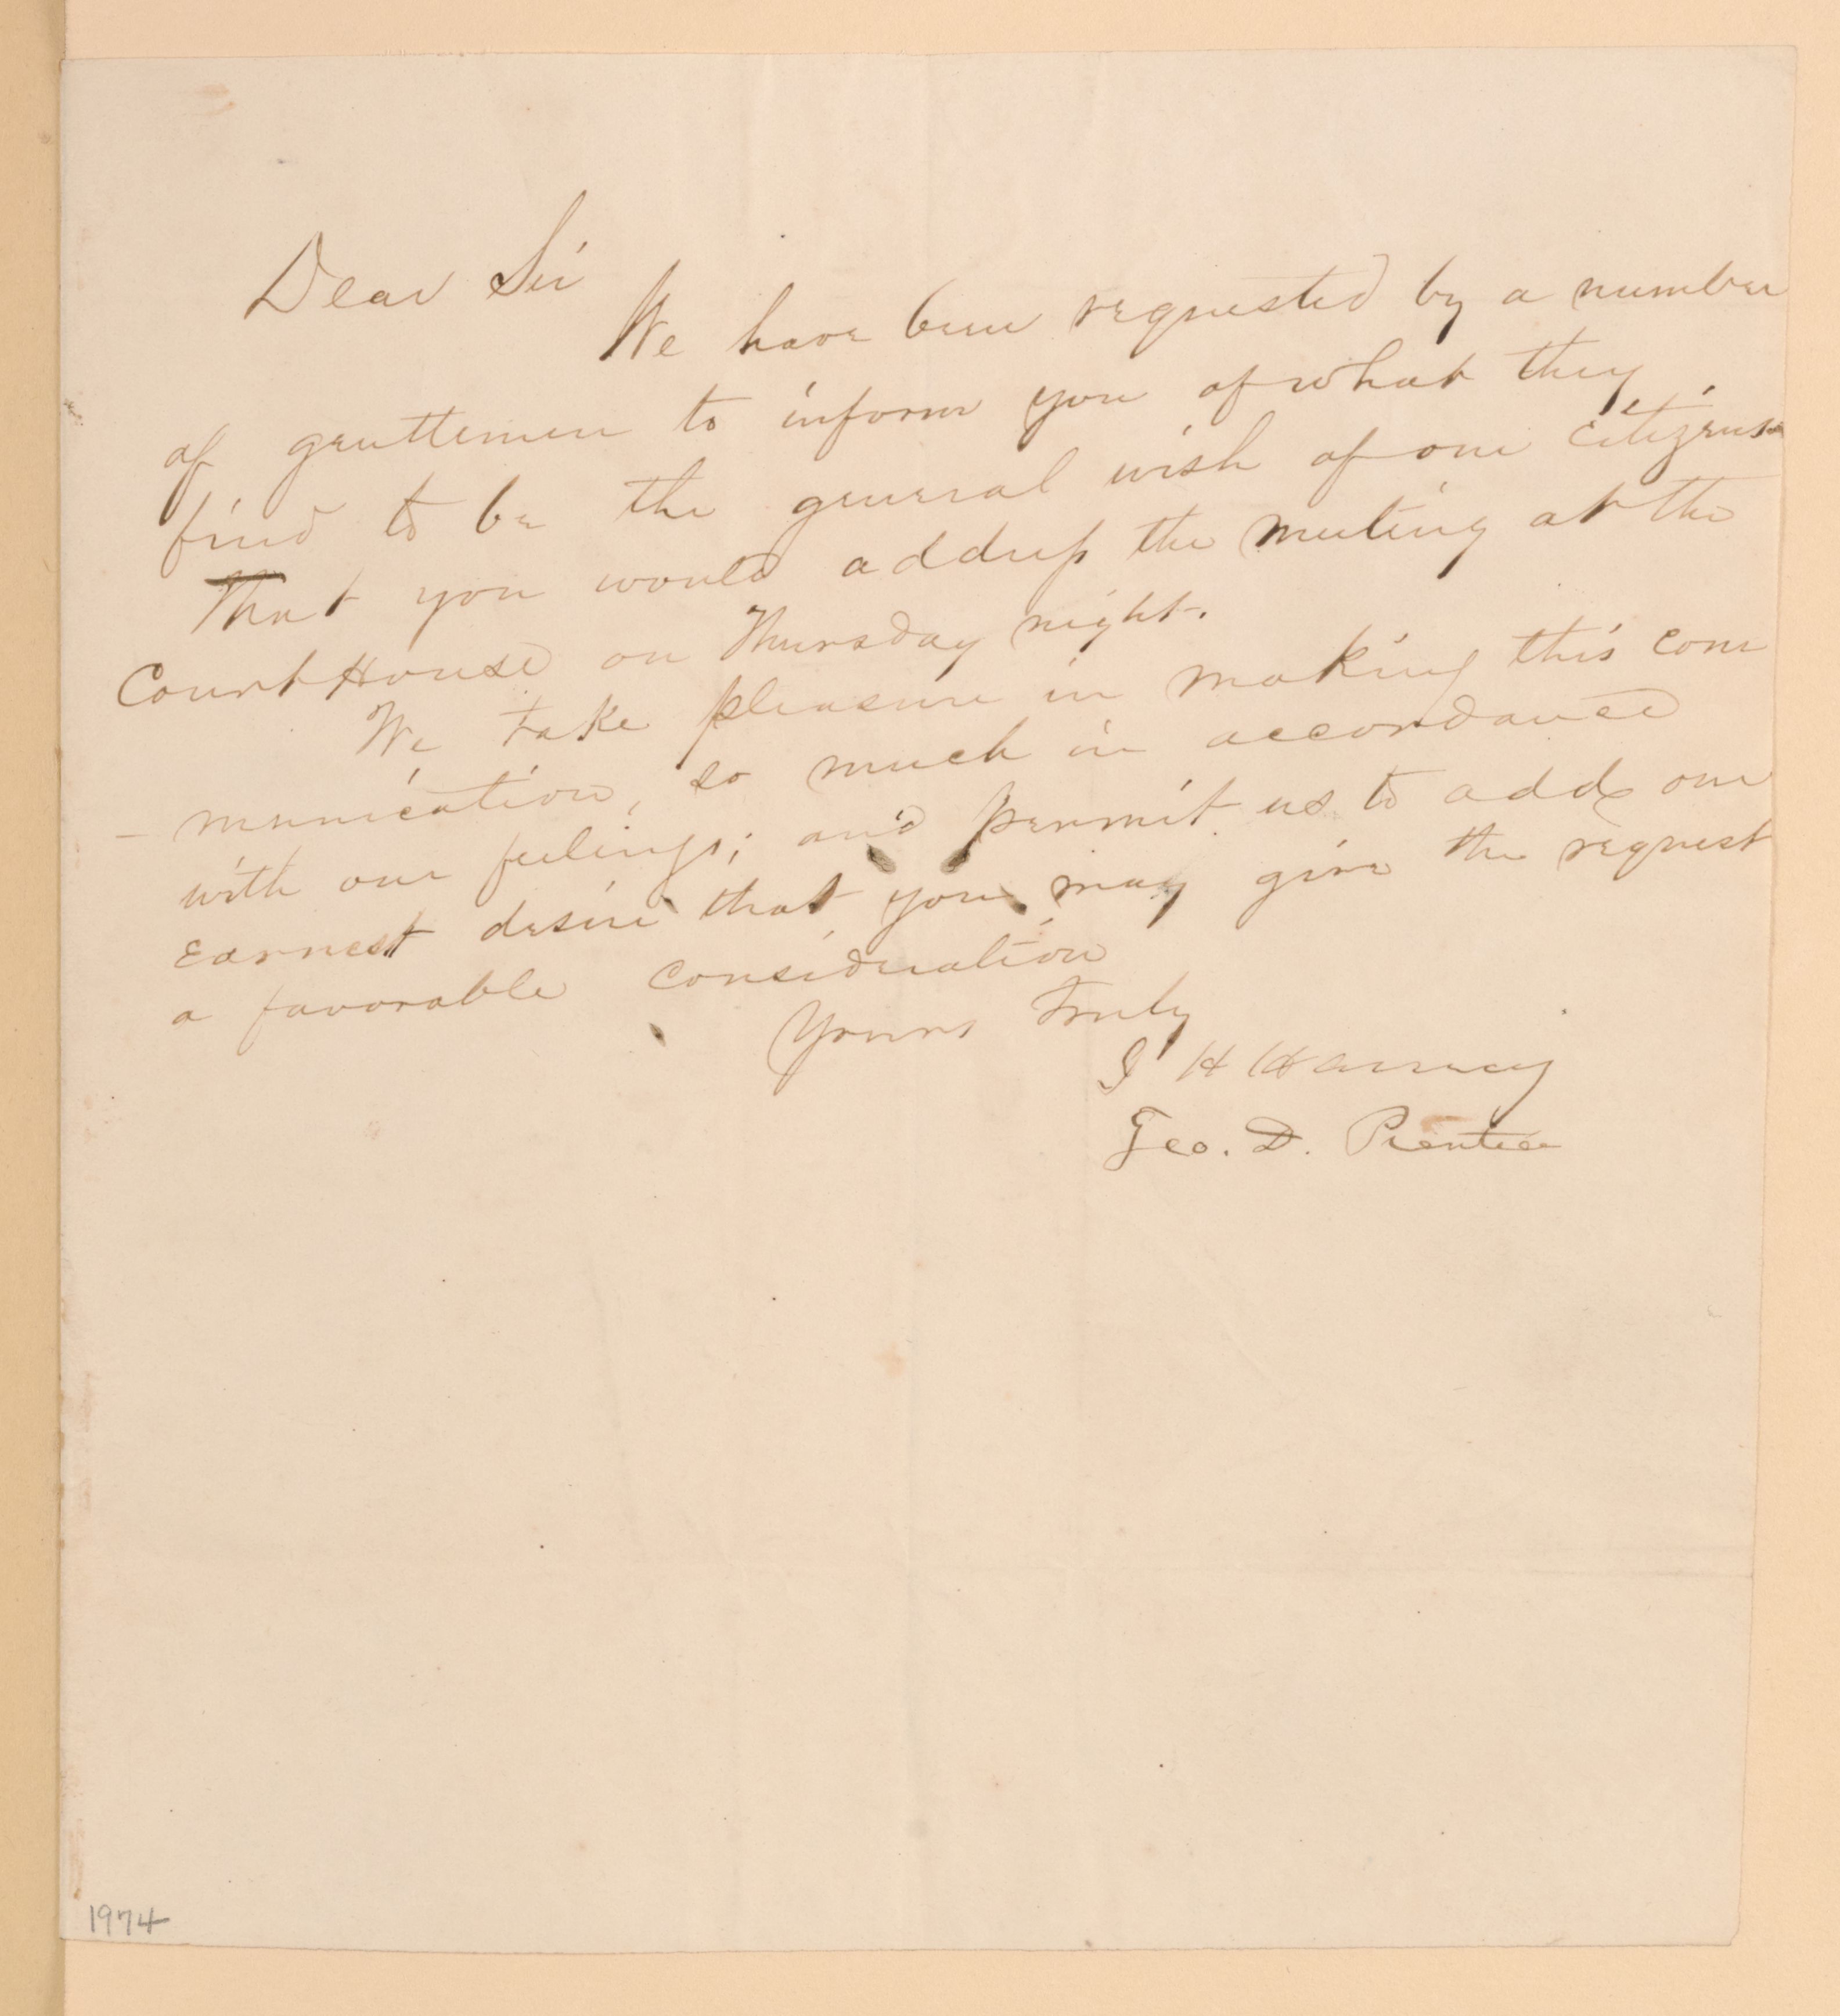 Dear Sir
We have been requested by a number
of gentlemen to inform you of what they
find to be the general wish of our citizens
That you would address the meeting at the
Court House on Thursday night.
We take pleasure in making this com
- munication, so much in accordance
with our feelings; and permit us to add our
earnest desire that you may give the request
a favorable consideration
Yours Truly
J H Harney
Geo. D. Prentice
1974